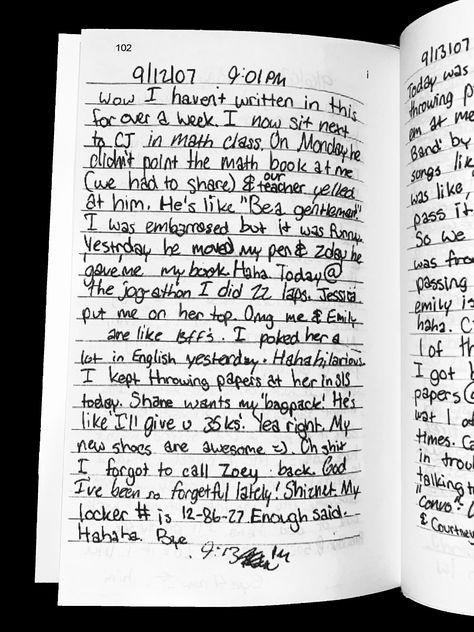 102
9/12/07 9:01PM
Wow I haven't written in this
for over a week. I now sit next
to CJ in math class. On Monday he
didn't point the math book at me
(we had to share) & our teacher yelled
at him. He's like "Be a gentleman"
I was embarrassed but it was funny.
Yesterday he moved my pen & 2day he
gave me my book. Haha. Today @
the jog-athon I did 22 laps. Jessica
put me on her top. Omg me & Emily
are like BFF's. I poked her a
lot in English yesterday. Haha hilarious.
I kept throwing papers at her in SLS
today. Shane wants my 'bagpack'. He's
like 'I'll give u 35 ks'. Yea right. My
new shoes are awesome =). Oh shit
I forgot to call Zoey back. God
I've been so forgetful lately! Shiznet. My
locker # is 12-86-27. Enough said.
Hahaha. Bye
9:13
9/13/07
Today was
throwing p
em at me
Band' by
songs lik
was like,
pass it
So we
was from
passing
emily is
haha. C
1 of th
I got
papers @
wat I
times. Ca
in trou
talking t
"convo".
& Courtney